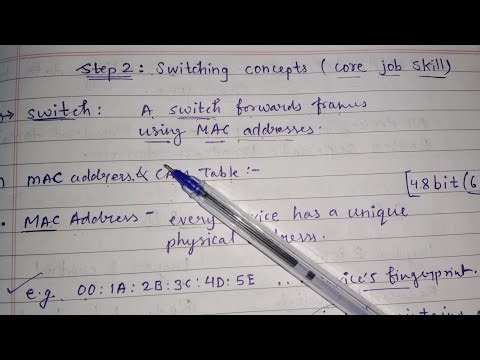 Step 2: Switching concepts (core job skill)
→ switch: A switch forwards frames
using MAC addresses.
MAC address & Table :-
[48bit (6
MAC Address - every has a unique
physical
e.g. 00:1A:2B:3C:4D:5E ... fingerprint.